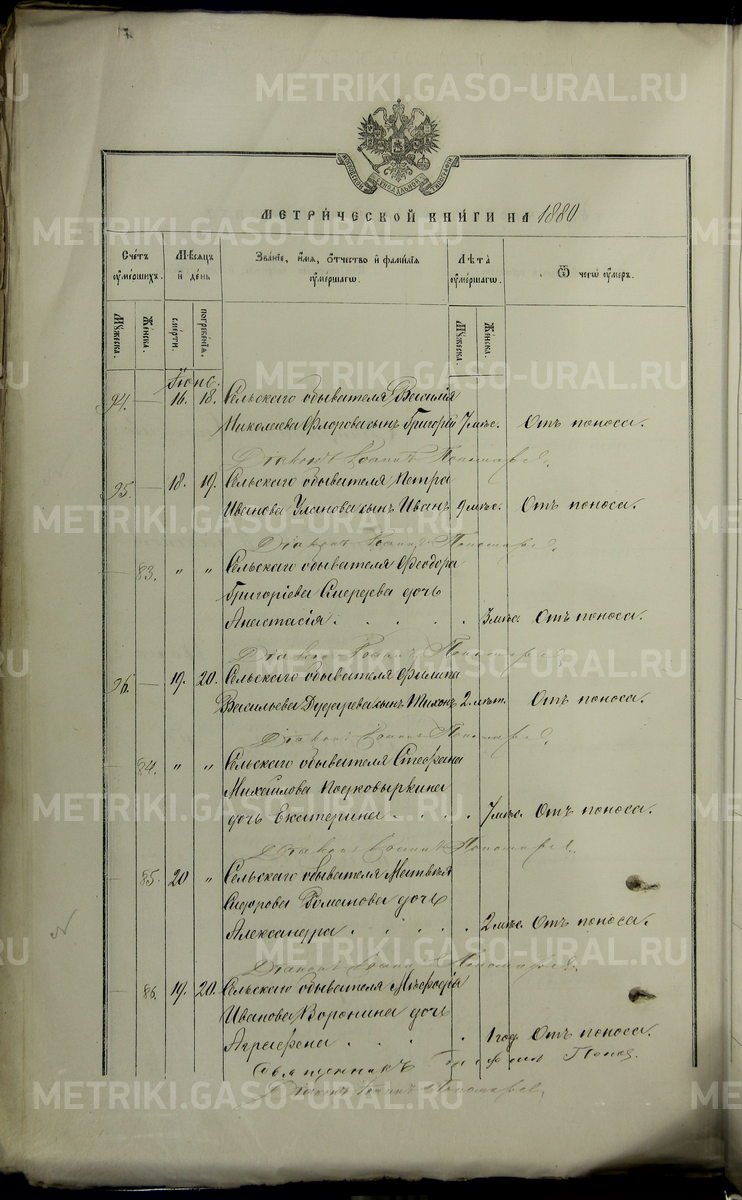 METRIKI.GASO-URAL.RU
МЕТРИ́ЧЕСКОЙ КНИ́ГИ НА 1880
Сче́тъ оуме́ршихъ.
Мѣ́сяцъ и҆ де́нь
Зва́нїе, и҆́мя, ѻ҆́тчество и҆ фами́лїя оуме́ршагѡ.
Лѣ́та оуме́ршагѡ.
Ѿ чегѡ̀ оу́меръ.
Му́жеска.
Же́нска.
сме́рти.
погребе́нїя.
Му́жеска.
Же́нска.
Іюнь.
94. — 16. 18. Сельскаго обывателя Василія
Николаева Фролова сынъ Григорій 7 мѣс. Отъ поноса.
Діаконъ Іоаннъ Пономаревъ.
95. — 18. 19. Сельскаго обывателя Петра
Иванова Уланова сынъ Иванъ 9 мѣс. Отъ поноса.
Діаконъ Іоаннъ Пономаревъ.
— 83. " " Сельскаго обывателя Ѳеодора
Григоріева дочь
Анастасія . . . . . 3 мѣс. Отъ поноса.
Діаконъ Іоаннъ Пономаревъ.
96. — 19. 20. Сельскаго обывателя Филиппа
Васильева сынъ Тихонъ 2. лѣтъ. Отъ поноса.
Діаконъ Іоаннъ Пономаревъ.
— 84. " " Сельскаго обывателя Стефана
Михайлова Подковыркина
дочь Екатерина . . . . 7 мѣс. Отъ поноса.
Діаконъ Іоаннъ Пономаревъ.
— 85. 20 " Сельскаго обывателя Матвѣя
Сидорова Романова дочь
Александра . . . . . 2 мѣс. Отъ поноса.
Діаконъ Іоаннъ Пономаревъ.
— 86. 19. 20. Сельскаго обывателя Меѳодія
Иванова Воронина дочь
Аграфена . . . . 1 год. Отъ поноса.
Священникъ Поповъ.
Діаконъ Іоаннъ Пономаревъ.